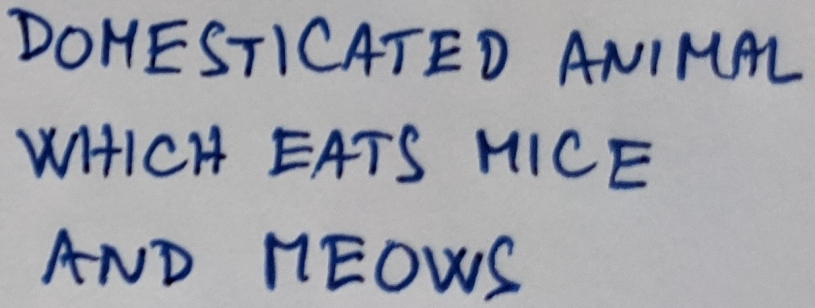 DOMESTICATED ANIMAL
WHICH EATS MICE
AND MEOWS